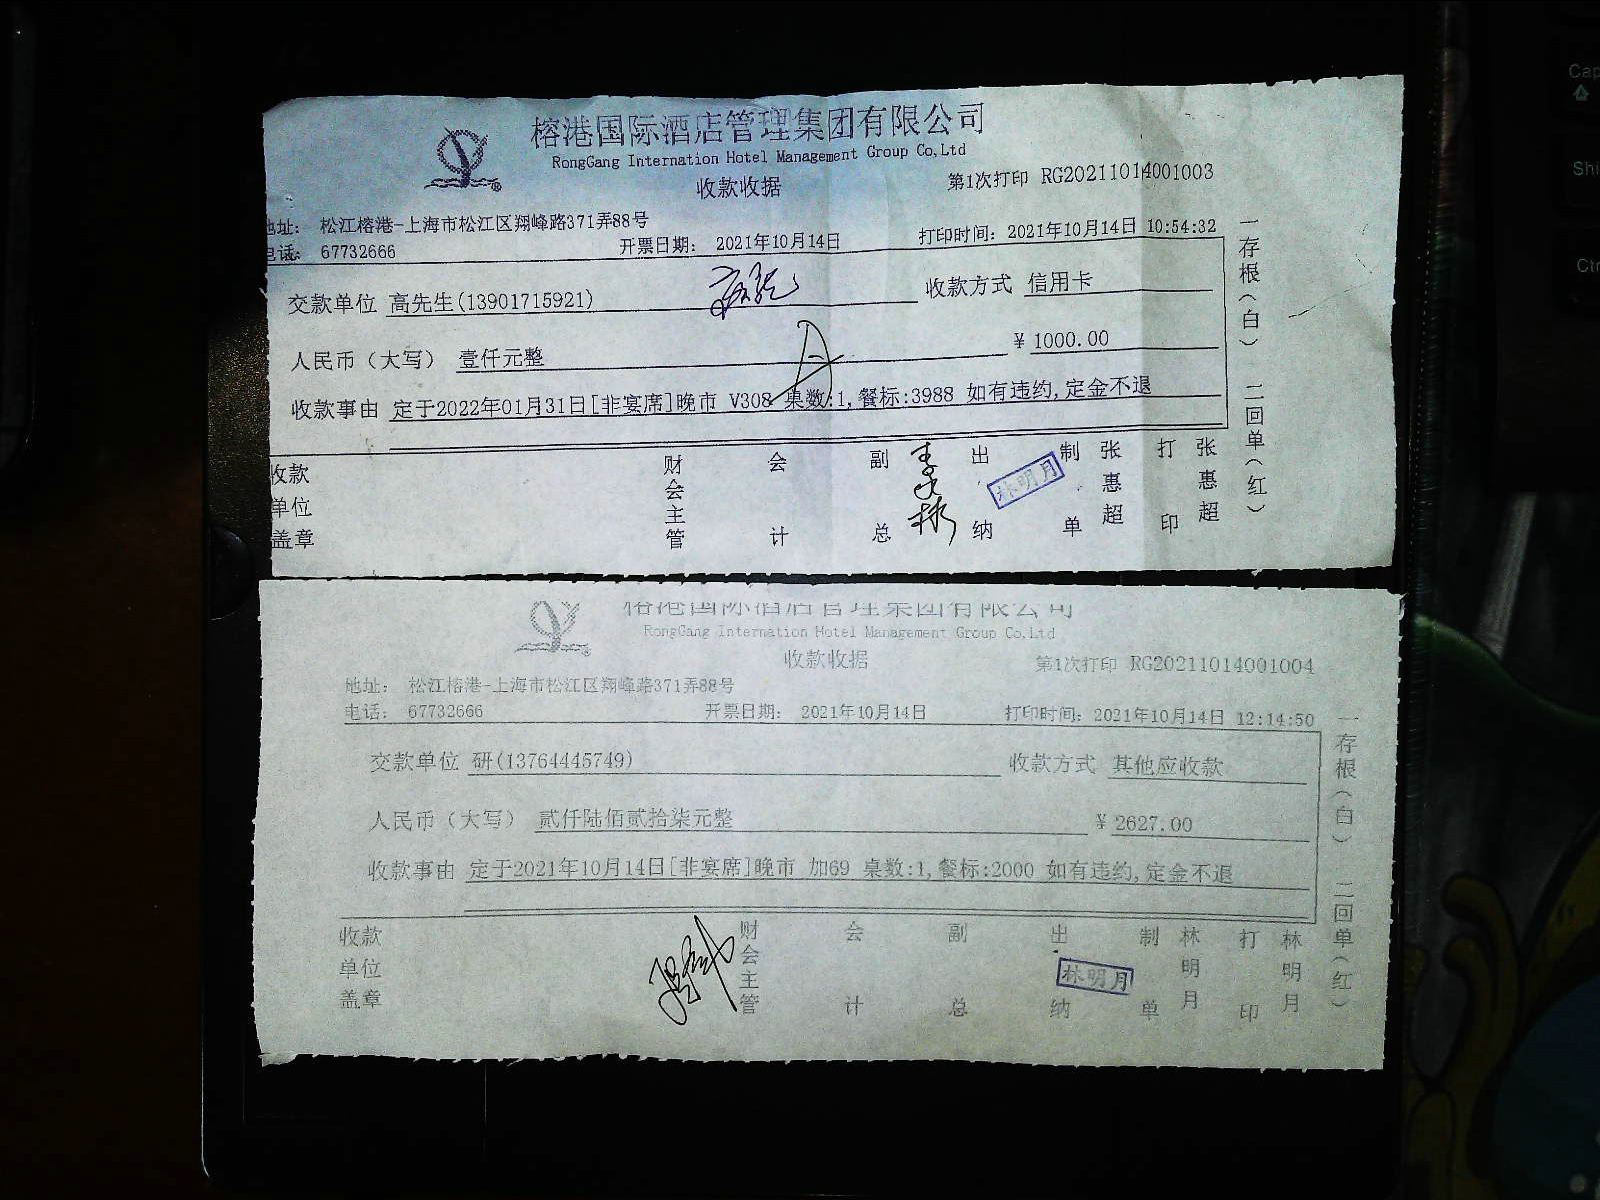 榕港国际酒店管理集团有限公司
RongGang Internation Hotel Management Group Co,Ltd
收款收据
第1次打印 RG20211014001003
地址: 松江榕港-上海市松江区翔峰路371弄88号
电话: 67732666 开票日期: 2021年10月14日 打印时间: 2021年10月14日 10:54:32
交款单位 高先生(13901715921) 收款方式 信用卡
人民币(大写) 壹仟元整 ¥ 1000.00
收款事由 定于2022年01月31日[非宴席]晚市 V308 桌数:1,餐标:3988 如有违约,定金不退
一存根(白) 二回单(红)
收款单位盖章 财会主管 会计 副总 出纳 林明月 制单 张惠超 打印 张惠超
榕港国际酒店管理集团有限公司
RongGang Internation Hotel Management Group Co,Ltd
收款收据
第1次打印 RG20211014001004
地址: 松江榕港-上海市松江区翔峰路371弄88号
电话: 67732666 开票日期: 2021年10月14日 打印时间: 2021年10月14日 12:14:50
交款单位 研(13764445749) 收款方式 其他应收款
人民币(大写) 贰仟陆佰贰拾柒元整 ¥ 2627.00
收款事由 定于2021年10月14日[非宴席]晚市 加69 桌数:1,餐标:2000 如有违约,定金不退
一存根(白) 二回单(红)
收款单位盖章 财会主管 会计 副总 出纳 林明月 制单 林明月 打印 林明月